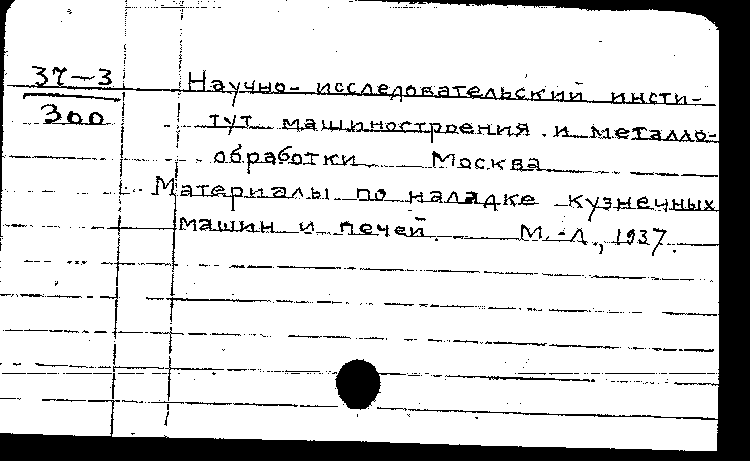 37-3
300
Научно-исследовательский инсти-
тут машиностроения и металло-
обработки Москва
Материалы по наладке кузнечных
машин и печей. М.-Л., 1937.